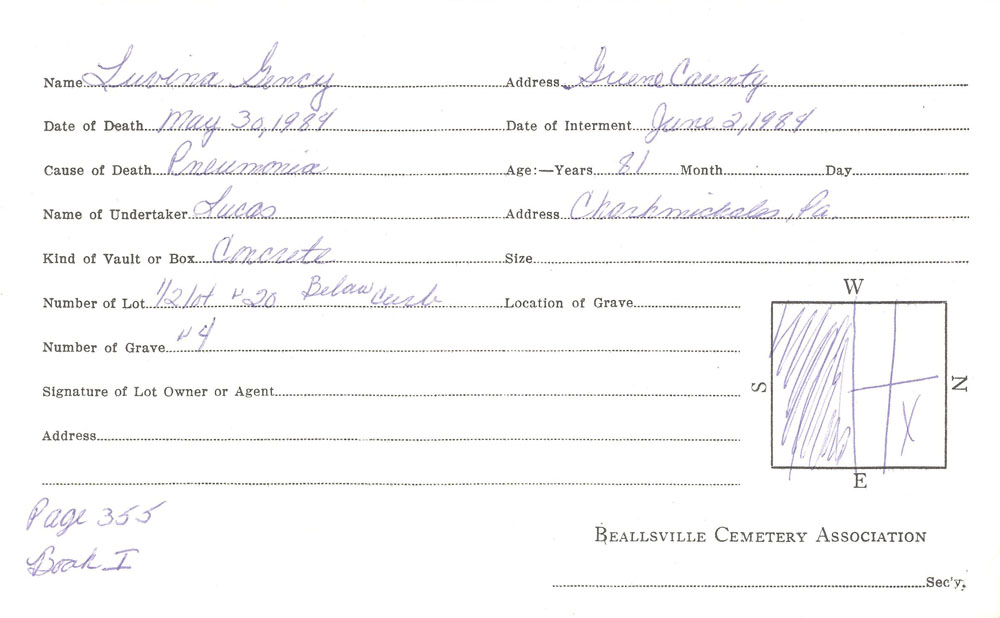 Name Luvina Gency Address Greene County
Date of Death May 30, 1984 Date of Interment June 2, 1984
Cause of Death Pneumonia Age:—Years 81 Month Day
Name of Undertaker Lucas Address Pa
Kind of Vault or Box Concrete Size
Number of Lot 1/2 lot #20 Below Curb Location of Grave
W
Number of Grave #4
Signature of Lot Owner or Agent
S N
X
Address
E
Page 355
Book I
BEALLSVILLE CEMETERY ASSOCIATION
Sec'y.